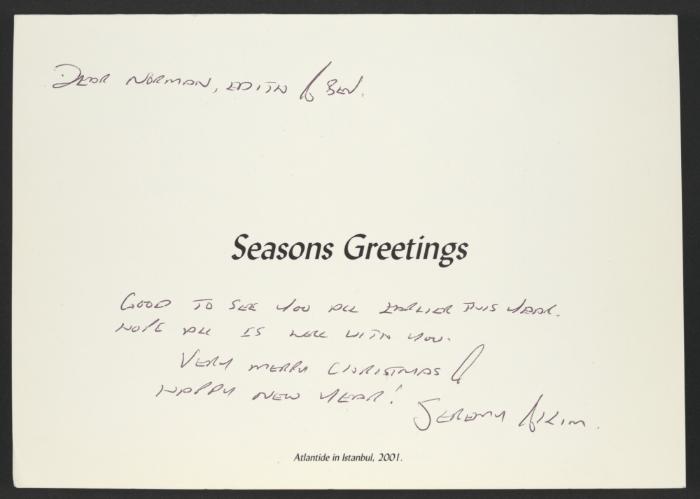 DEAR NORMAN, EDITH & BEN.
Seasons Greetings
GOOD TO SEE YOU ALL EARLIER THIS YEAR.
HOPE ALL IS WELL WITH YOU.
VERY MERRY CHRISTMAS &
HAPPY NEW YEAR!
JEREMY & KIM.
Atlantide in Istanbul, 2001.